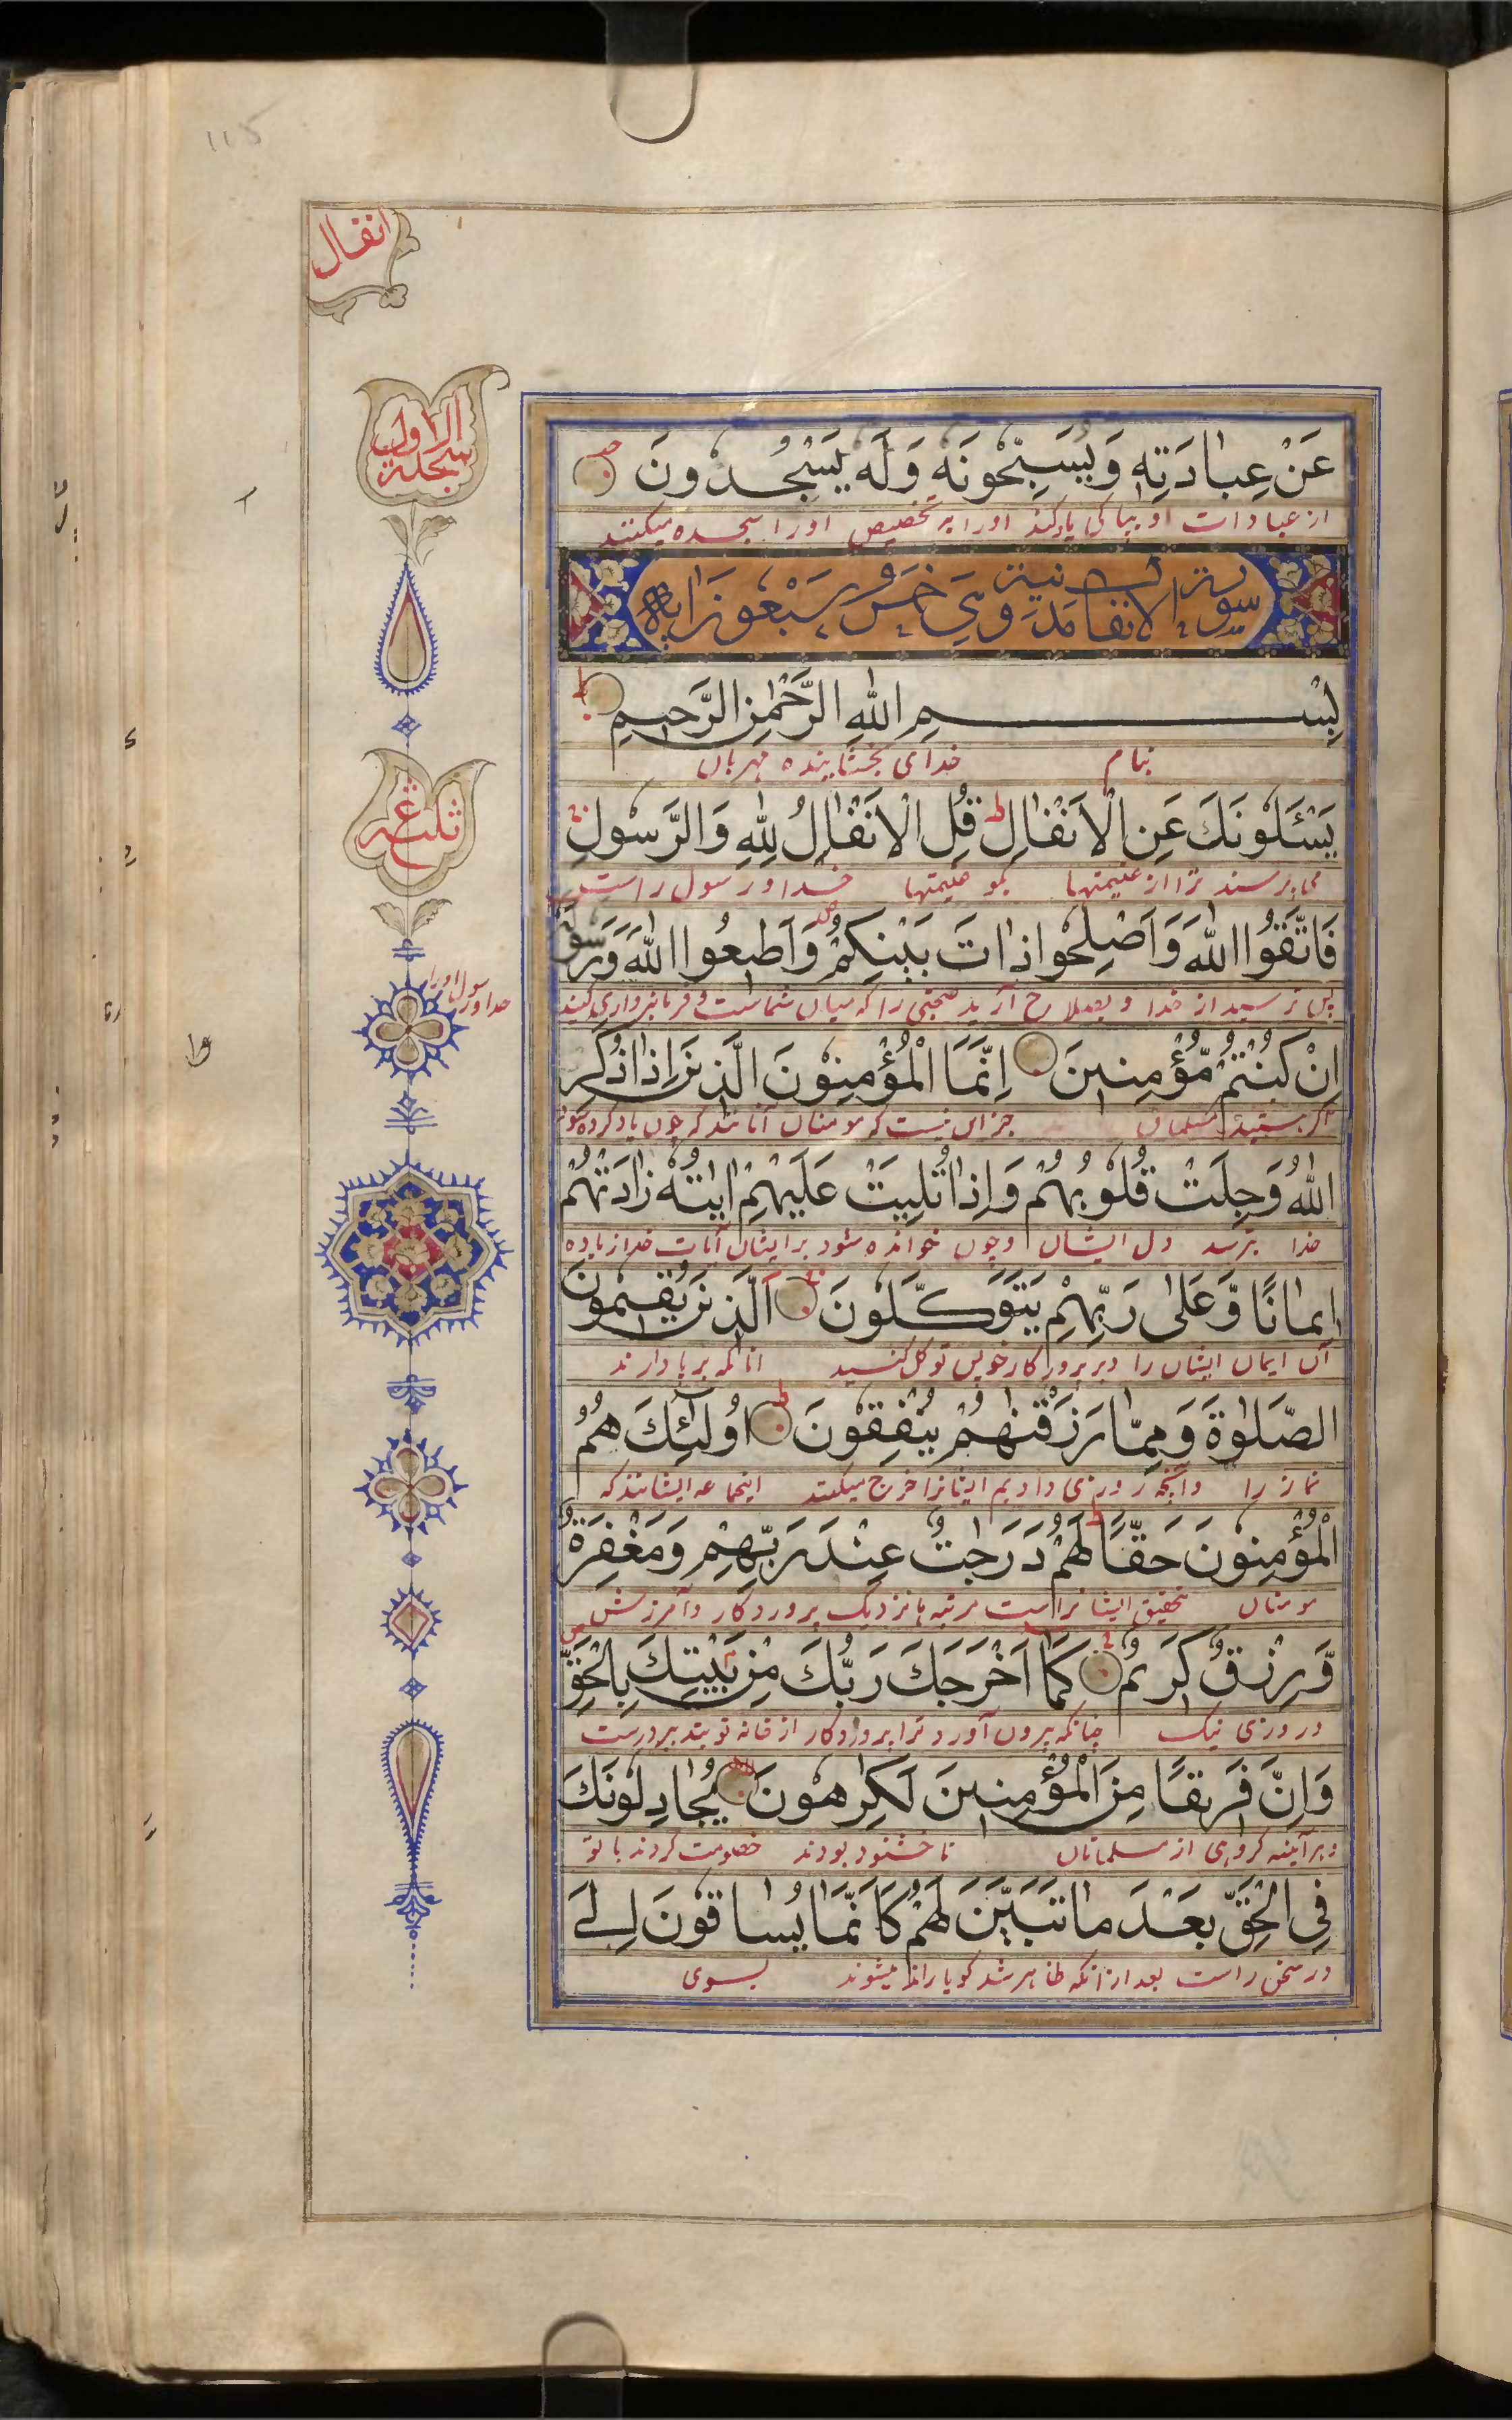 115
انفال
السجدة الاول
عَنْ عِبادَتِهٖ وَيُسَبِّحُونَهٗ وَلَهٗ يَسْجُدونَ
از عبادات او و بپاکی یاد کنند او را و به تخصیص او را سجده میکنند
سورة الانفال مدنية وهي خمس وسبعون اية
بِسْمِ اللهِ الرَّحْمٰنِ الرَّحيمِ
بنام خدای بخشاینده مهربان
ثلثة
يَسْئَلُونَكَ عَنِ الْاَنْفٰالِ ط قُلِ الْاَنْفٰالُ لِلّٰهِ وَالرَّسولِ
می‌پرسند ترا از غنیمتها بگو غنیمتها خدا و رسول راست
فَاتَّقُوا اللهَ وَاَصْلِحوا ذاتَ بَيْنِكُمْ وَاَطيعُوا اللهَ وَرَسولَهٗ
پس ترسید از خدا و بصلاح آرید صحبتی را که میان شماست و فرمانبرداری کنید
خدا و رسول او را
اِنْ كُنْتُمْ مُؤْمِنينَ اِنَّمَا الْمُؤْمِنوُنَ الَّذينَ اِذا ذُكِرَ
اگر هستید مسلمان جز این نیست که مومنان آنانند که چون یاد کرده شود
اللهُ وَجِلَتْ قُلُوبُهُمْ وَاِذا تُلِيَتْ عَلَيْهِمْ اٰيٰتُهٗ زٰادَتْهُمْ
خدا بترسد دل ایشان و چون خوانده شود بر ایشان آیات خدا زیاده
ايمانًا وَّعَلىٰ رَبِّهِمْ يَتَوَكَّلونَ اَلَّذينَ يُقيمُونَ
آن ایمان ایشان را و بر پروردکار خویش توکل کنید آنانکه برپا دارند
الصَّلٰوةَ وَمِمّا رَزَقْنٰهُمْ يُنْفِقُونَ اوُلٰئِكَ هُمُ
نماز را و آنچه روزی دادیم ایشانرا خرج میکنند اینجماعه ایشانند که
الْمُؤْمِنوُنَ حَقًّا ط لَهُمْ دَرَجٰتٌ عِنْدَ رَبِّهِمْ وَمَغْفِرَةٌ
مومنان بتحقیق ایشانراست مرتبه‌ها نزدیک پروردکار و آمرزش
وَّرِزْقٌ كَريمٌ كَمٰا اَخْرَجَكَ رَبُّكَ مِنْ بَيْتِكَ بِالْحَقِّ
و روزی نیک چنانکه بیرون آورد ترا پروردکار از خانه تو بتدبیر درست
وَاِنَّ فَريقًا مِنَ الْمُؤْمِنينَ لَكٰرِهونَ يُجادِلُونَكَ
و هرآینه کروهی از مسلمانان ناخشنود بودند خصومت کردند با تو
فِى الْحَقِّ بَعْدَ ما تَبَيَّنَ لَهُمْ كَاَنَّمٰا يُساقُونَ اِلَى
در سخن راست بعد از آنکه ظاهر شد کویا رانده میشوند بسوی